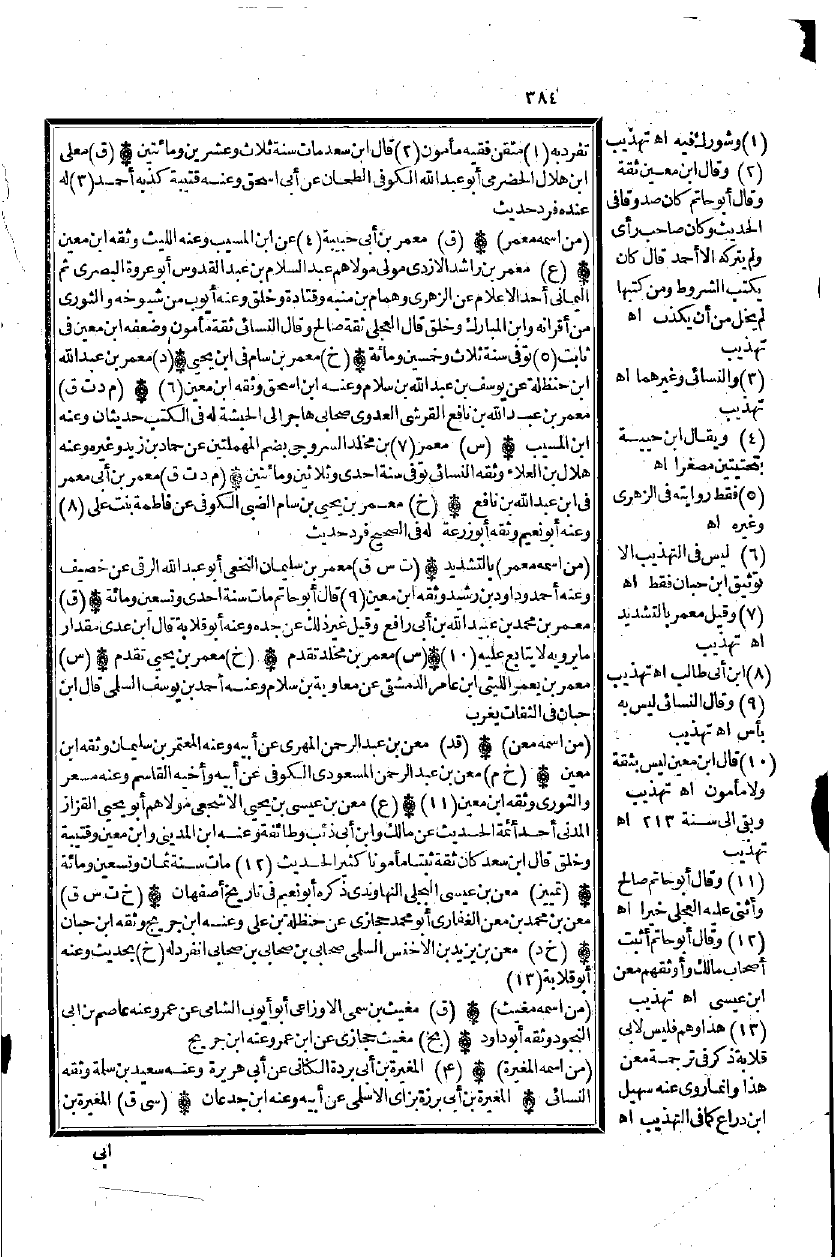 ٣٨٤
تفرد به (١) متقن فقيه مأمون (٢) قال ابن سعد مات سنة ثلاث وعشرين ومائتين ۞ (ق) معلى
ابن هلال الحضرمي أبو عبد الله الكوفى الطحان عن أبى اسحق وعنه قتيبة كذبه أحمد (٣) له
عنده فرد حديث
(من اسمه معمر) ۞ (ق) معمر بن أبى حبيبة (٤) عن ابن المسيب وعنه الليث وثقه ابن معين
۞ (ع) معمر بن راشد الازدى مولى مولاهم عبد السلام بن عبد القدوس أبو عروة البصرى ثم
اليمانى أحد الاعلام عن الزهرى وهمام بن منبه وقتادة وخلق وعنه أيوب من شيوخه والثورى
من أقرانه وابن المبارك وخلق قال العجلى ثقة صالح وقال النسائى ثقة مأمون وضعفه ابن معين فى
ثابت (٥) توفى سنة ثلاث وخمسين ومائة ۞ (خ) معمر بن سام فى ابن يحيى ۞ (د) معمر بن عبد الله
ابن حنظلة عن يوسف بن عبد الله بن سلام وعنه ابن اسحق وثقه ابن معين (٦) ۞ (م د ت ق)
معمر بن عبد الله بن نافع القرشى العدوى صحابى هاجر الى الحبشة له فى الكتب حديثان وعنه
ابن المسيب ۞ (س) معمر (٧) بن مخلد السروجى بضم المهملتين عن حماد بن زيد وغيره وعنه
هلال بن العلاء وثقه النسائى توفى سنة احدى وثلاثين ومائتين ۞ (م د ت ق) معمر بن أبى معمر
فى ابن عبد الله بن نافع ۞ (خ) معمر بن يحيى بن سام الضبى الكوفى عن فاطمة بنت على (٨)
وعنه أبو نعيم وثقه أبو زرعة له فى الصحيح فرد حديث
(من اسمه معمر) بالتشديد ۞ (ت س ق) معمر بن سليمان النخعى أبو عبد الله الرقى عن خصيف
وعنه أحمد وداود بن رشيد وثقه ابن معين (٩) قال أبو حاتم مات سنة احدى وتسعين ومائة ۞ (ق)
معمر بن محمد بن عبيد الله بن أبى رافع وقيل غير ذلك عن جده وعنه أبو قلابة قال ابن عدى مقدار
ما يرويه لا يتابع عليه (١٠) ۞ (س) معمر بن مخلد تقدم ۞ (خ) معمر بن يحيى تقدم ۞ (س)
معمر بن يعمر الليثى ابن عامر الدمشقى عن معاوية بن سلام وعنه أحمد بن يوسف السلمى قال ابن
حبان فى الثقات يغرب
(من اسمه معن) ۞ (قد) معن بن عبد الرحمن المهرى عن أبيه وعنه المعتمر بن سليمان وثقه ابن
معين ۞ (خ م) معن بن عبد الرحمن المسعودى الكوفى عن أبيه وأخيه القاسم وعنه مسعر
والثورى وثقه ابن معين (١١) ۞ (ع) معن بن عيسى بن يحيى الاشجعى مولاهم أبو يحيى القزاز
المدنى أحد أئمة الحديث عن مالك وابن أبى ذئب وطائفة وعنه ابن المدينى وابن معين وقتيبة
وخلق قال ابن سعد كان ثقة ثبتا مأمونا كثير الحديث (١٢) مات سنة ثمان وتسعين ومائة
۞ (تمييز) معن بن عيسى البجلى النهاوندى ذكره أبو نعيم فى تاريخ أصفهان ۞ (خ ت س ق)
معن بن محمد بن معن الغفارى أبو محمد حجازى عن حنظلة بن على وعنه ابن جريج وثقه ابن حبان
۞ (خ د) معن بن يزيد بن الأخنس السلمى صحابى بن صحابى بن صحابى انفرد له (خ) بحديث وعنه
أبو قلابة (١٣)
(من اسمه مغيث) ۞ (ق) مغيث بن سمى الاوزاعى أبو أيوب الشامى عن عمر وعنه عاصم بن ابى
النجود وثقه أبو داود ۞ (بخ) مغيث حجازى عن ابن عمر وعنه ابن جريج
(من اسمه المغيرة) ۞ (٤) المغيرة بن أبى بردة الكنانى عن أبى هريرة وعنه سعيد بن سلمة وثقه
النسائى ۞ المغيرة بن أبى برزة بزاى الاسلمى عن أبيه وعنه ابن جدعان ۞ (سى ق) المغيرة بن
ابى
(١) وشورك فيه اه تهذيب
(٢) وقال ابن معين ثقة
وقال أبو حاتم كان صدوقا فى
الحديث وكان صاحب رأى
ولم يتركه الا أحمد قال كان
يكتب الشروط ومن كتبها
لم يخل من أن يكذب اه
تهذيب
(٣) والنسائى وغيرهما اه
تهذيب
(٤) ويقال ابن حييية
بتحتيتين مصغرا اه
(٥) فقط روايته فى الزهرى
وغيره اه
(٦) ليس فى التهذيب الا
توثيق ابن حبان فقط اه
(٧) وقيل معمر بالتشديد
اه تهذيب
(٨) ابن أبى طالب اه تهذيب
(٩) وقال النسائى ليس به
بأس اه تهذيب
(١٠) قال ابن معين ليس بثقة
ولا مأمون اه تهذيب
وبقى الى سنة ٢١٣ اه
تهذيب
(١١) وقال أبو حاتم صالح
وأثنى عليه العجلى خيرا اه
(١٢) وقال أبو حاتم أثبت
أصحاب مالك وأوثقهم معن
ابن عيسى اه تهذيب
(١٣) هذا وهم فليس لابى
قلابة ذكر فى ترجمة معن
هذا وانما روى عنه سهيل
ابن دراع كما فى التهذيب اه